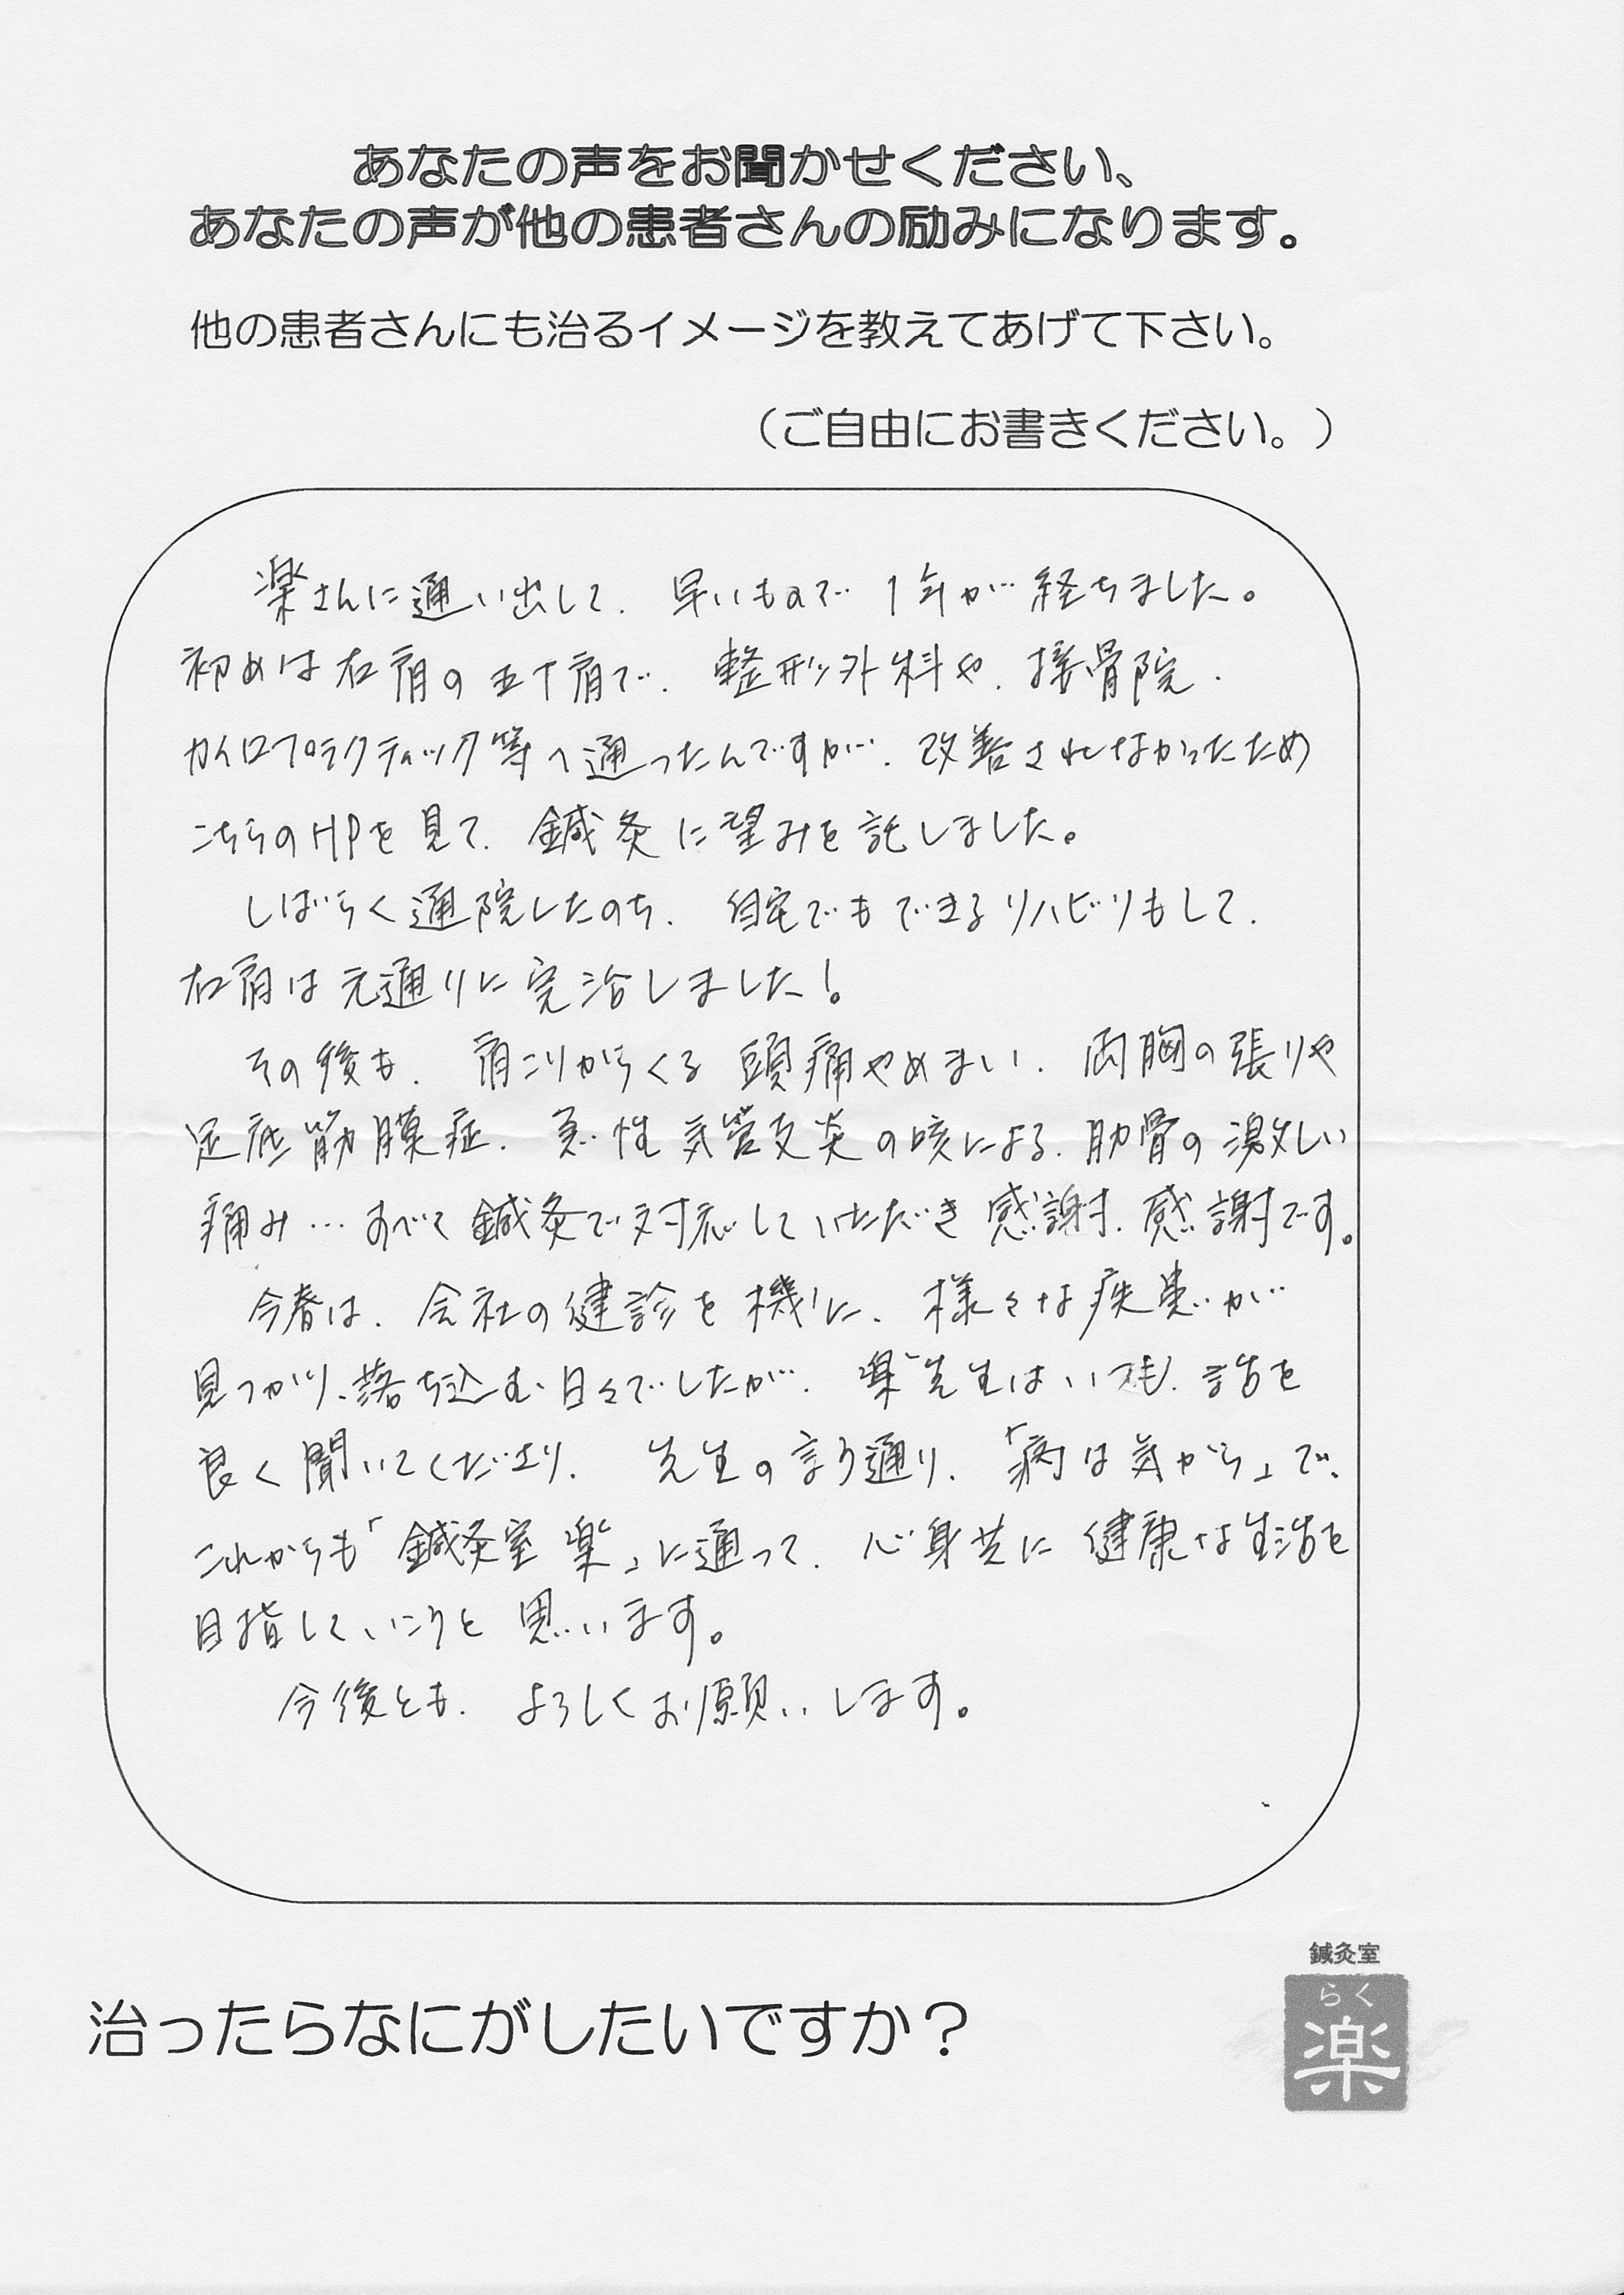 あなたの声をお聞かせください、
あなたの声が他の患者さんの励みになります。
他の患者さんにも治るイメージを教えてあげて下さい。
（ご自由にお書きください。）
楽さんに通い出して、早いもので1年が経ちました。
初めは右肩の五十肩で、整形外科や、接骨院、
カイロプラクティック等へ通ったんですが、改善されなかったため
こちらのHPを見て、鍼灸に望みを託しました。
しばらく通院したのち、自宅でもできるリハビリもして、
右肩は元通りに完治しました！
その後も、肩こりからくる頭痛やめまい、両胸の張りや
足底筋膜症、急性気管支炎の咳による、肋骨の激しい
痛み…すべて鍼灸で対応していただき感謝、感謝です。
今春は、会社の健診を機に、様々な疾患が
見つかり、落ち込む日々でしたが、楽先生はいつも、話を
良く聞いてくださり、先生の言う通り、「病は気から」で、
これからも「鍼灸室 楽」に通って、心身共に健康な生活を
目指していこうと思います。
今後とも、よろしくお願いします。
治ったらなにがしたいですか？
鍼灸室
らく
楽